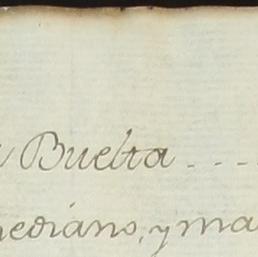 Buelta ----
mediano, y ma